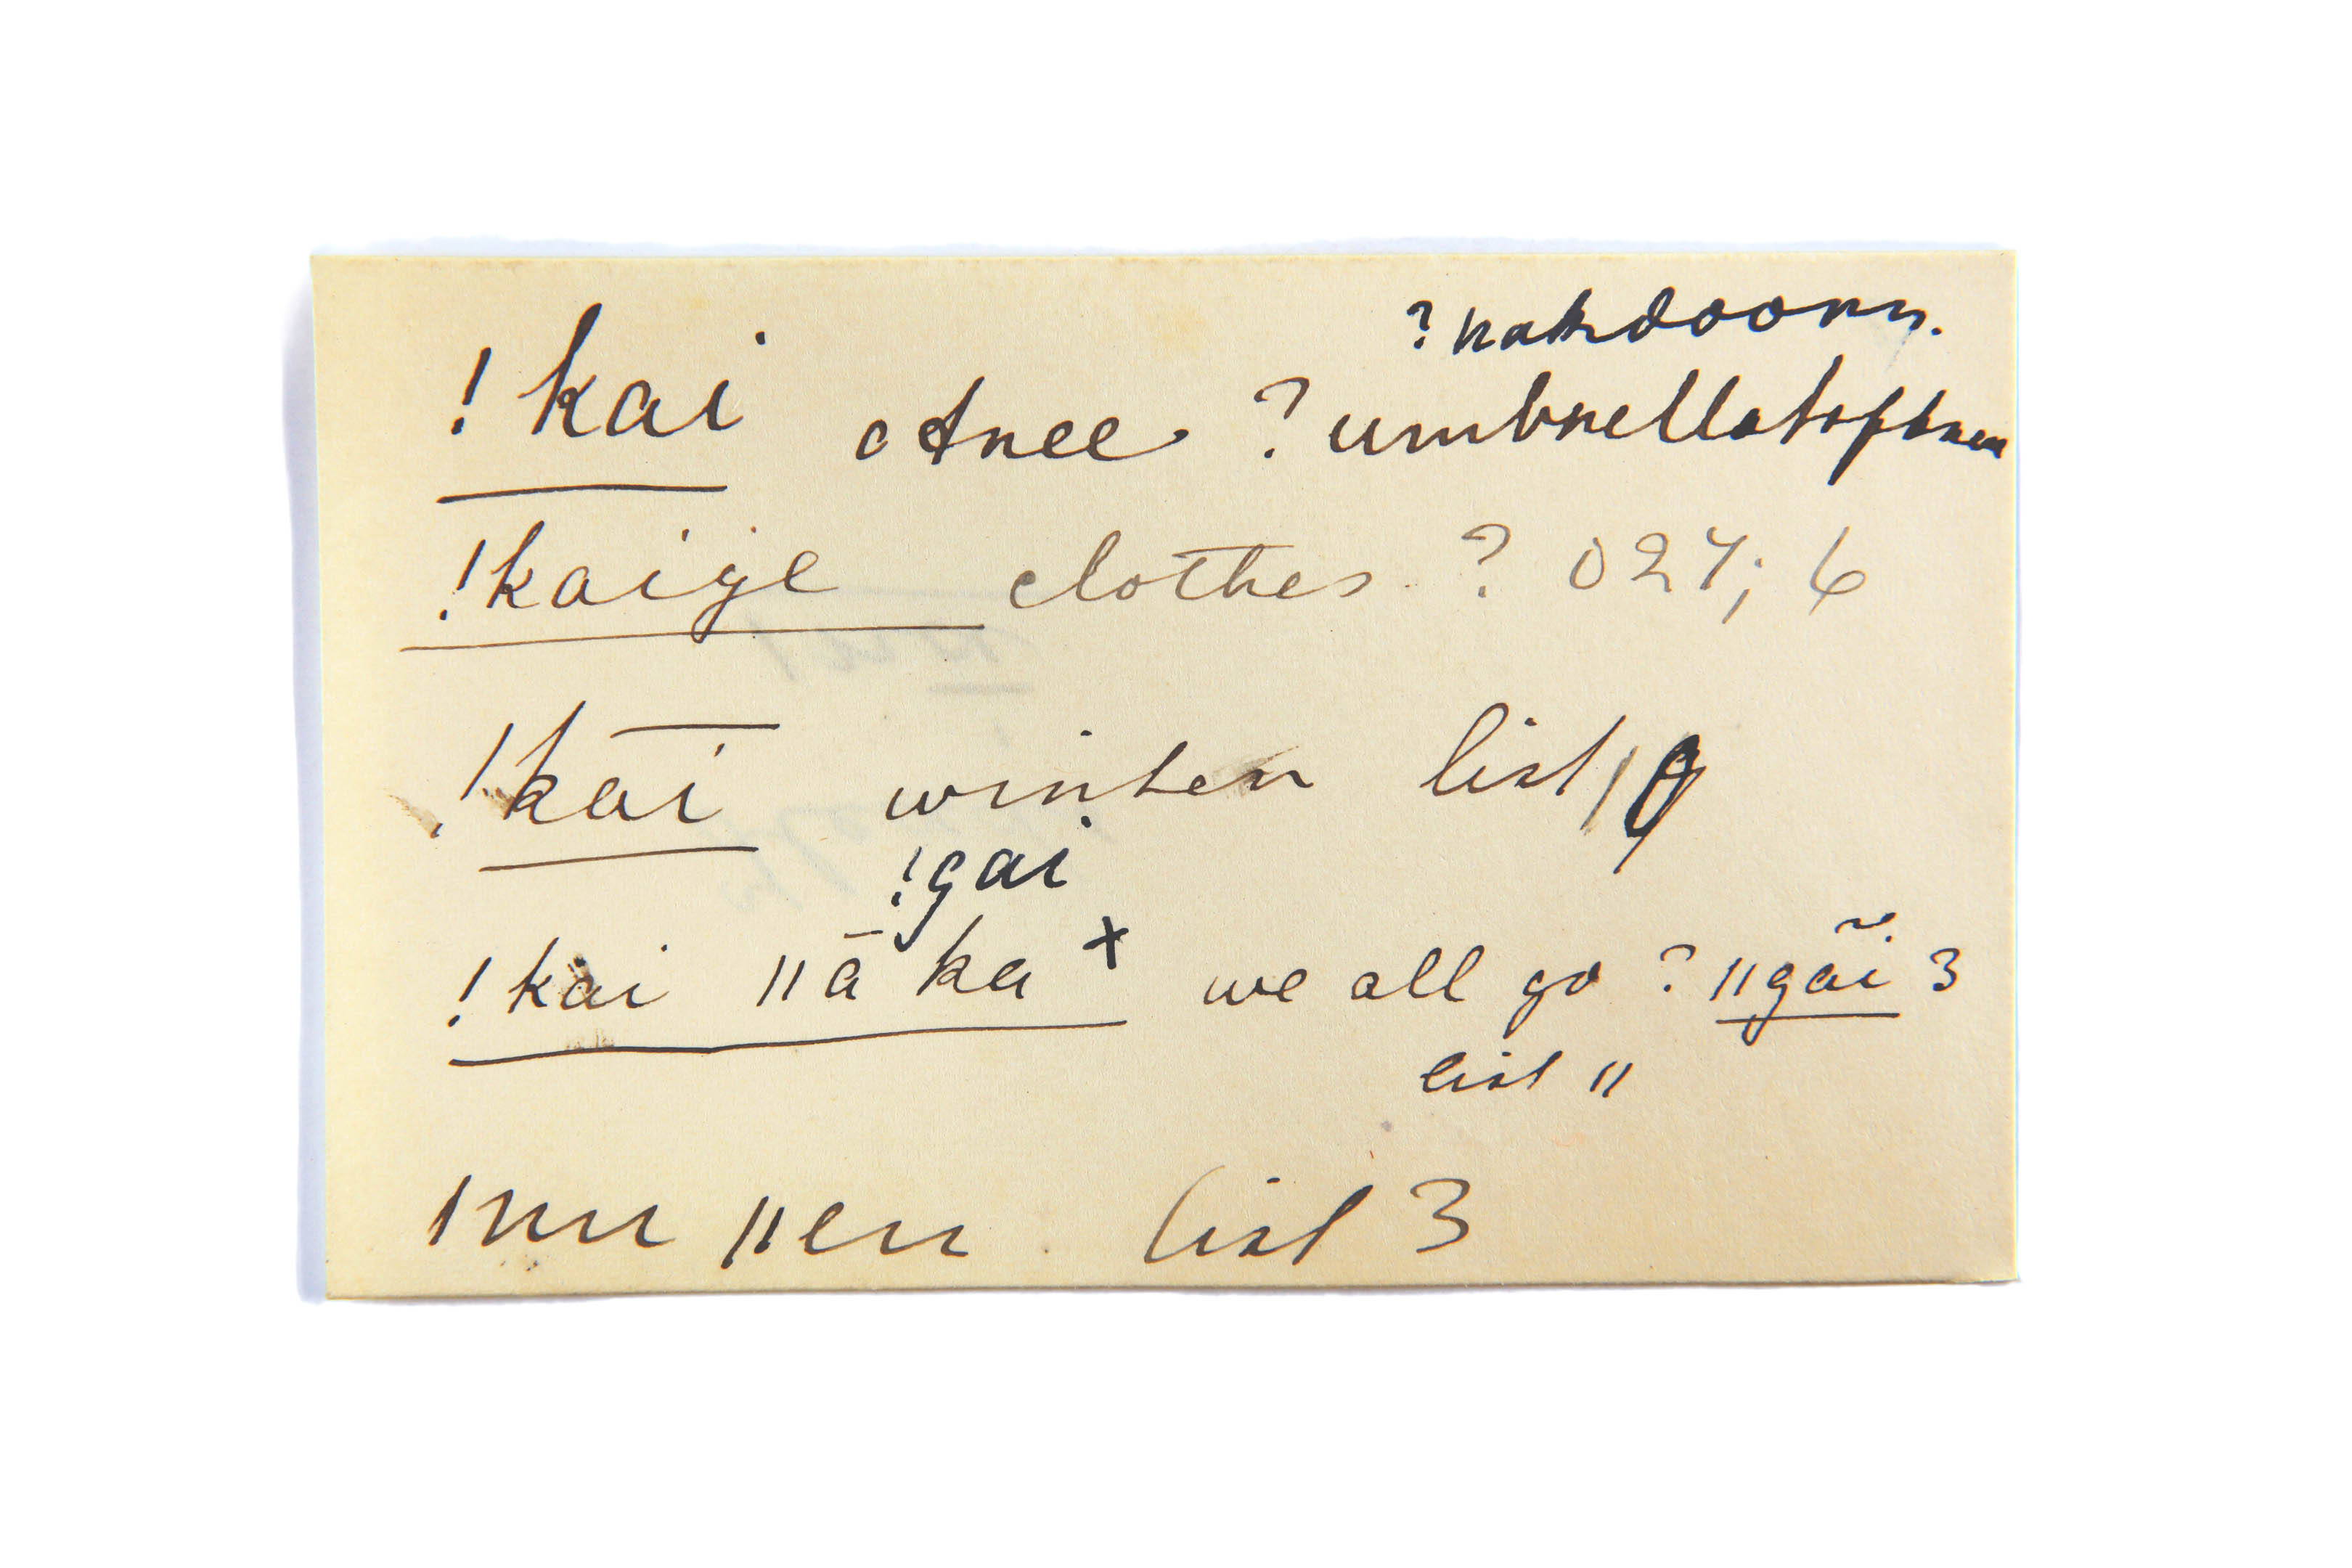 ? hakdoorn.
!kai a tree ? umbrellatoptree
!kaige clothes ? 027; 6
!kai winter list 19
!gai
!kai ǁā ka × we all go ? ǁgãi 3
list ǁ
ǀnu ǁen list 3